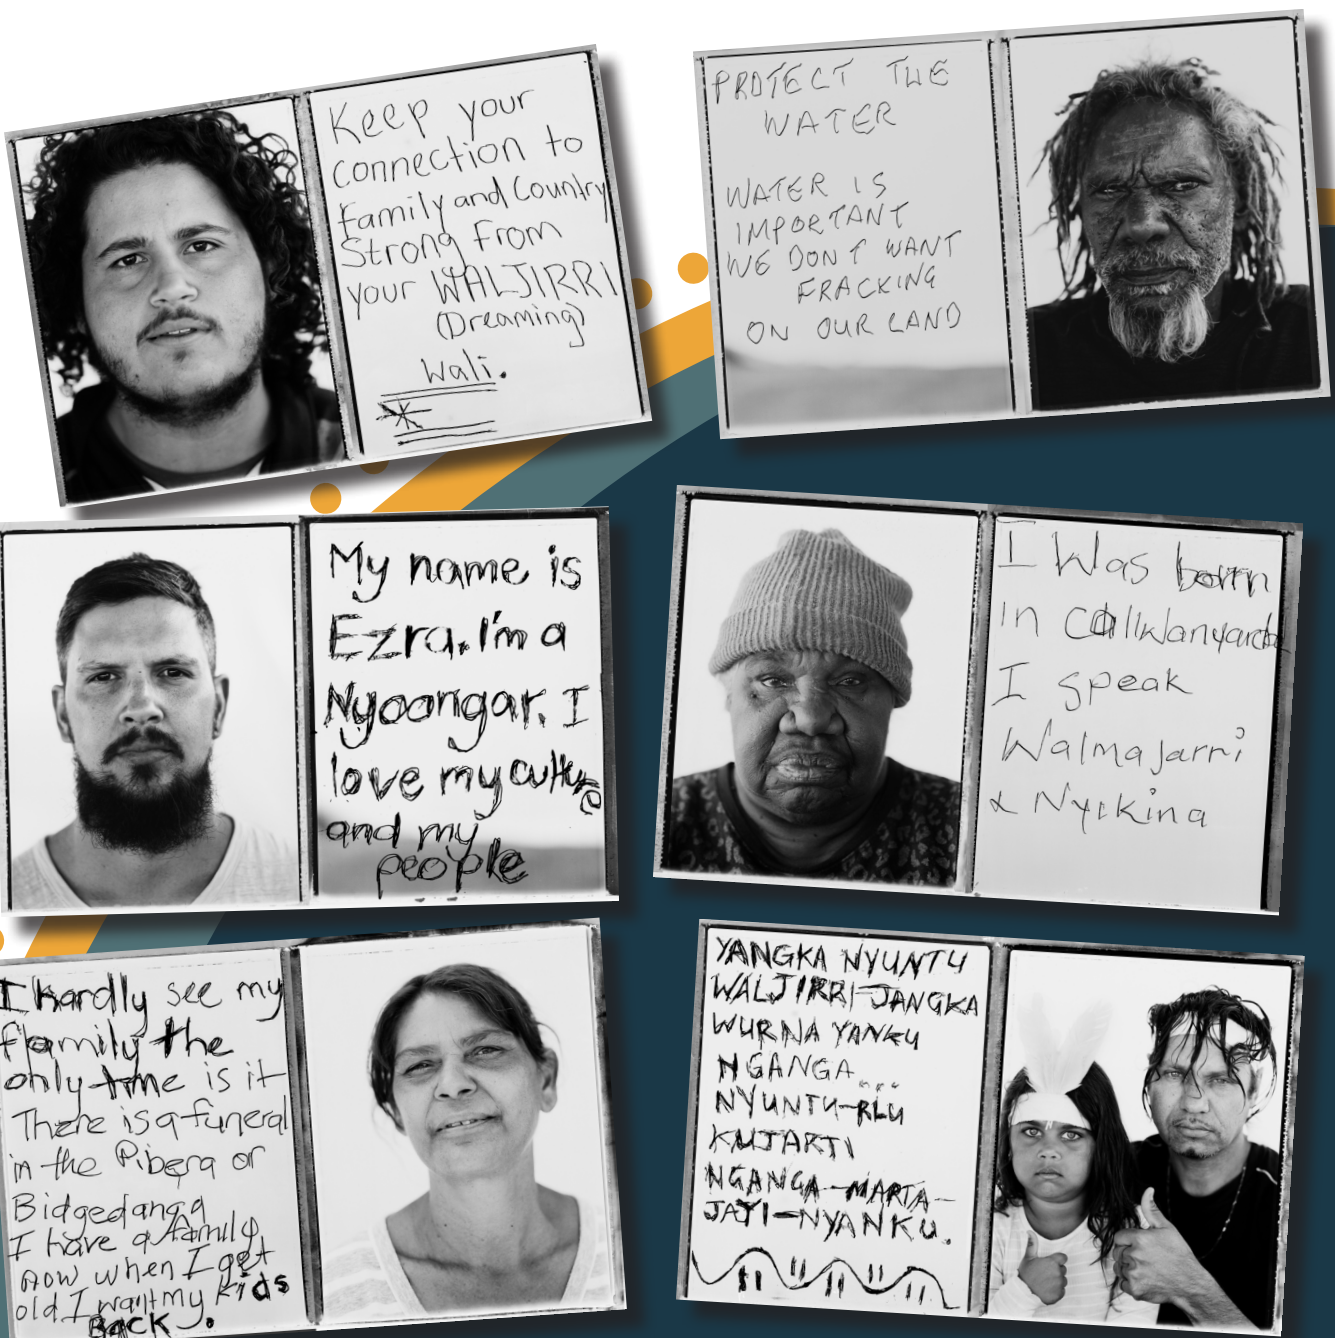 Keep your
connection to
family and Country
Strong from
your WALJIRRI
(Dreaming)
Wali.
PROTECT THE
WATER
WATER IS
IMPORTANT
WE DONT WANT
FRACKING
ON OUR LAND
My name is
Ezra. I'm a
Nyoongar. I
love my culture
and my
people
I Was born
In
I speak
Walmajarri
& Nyikina
I hardly see my
family the
only time is it
There is a funeral
in the Pibera or
Bidgedanga
I have a family
now when I get
old I want my kids
BACK.
YANGKA NYUNTU
WALJIRRI-JANGKA
WURNA YANKU
NGANGA...
NYUNTU-RLU
KUJARTI
NGANGA-MARTA-
JAYI-NYANKU.